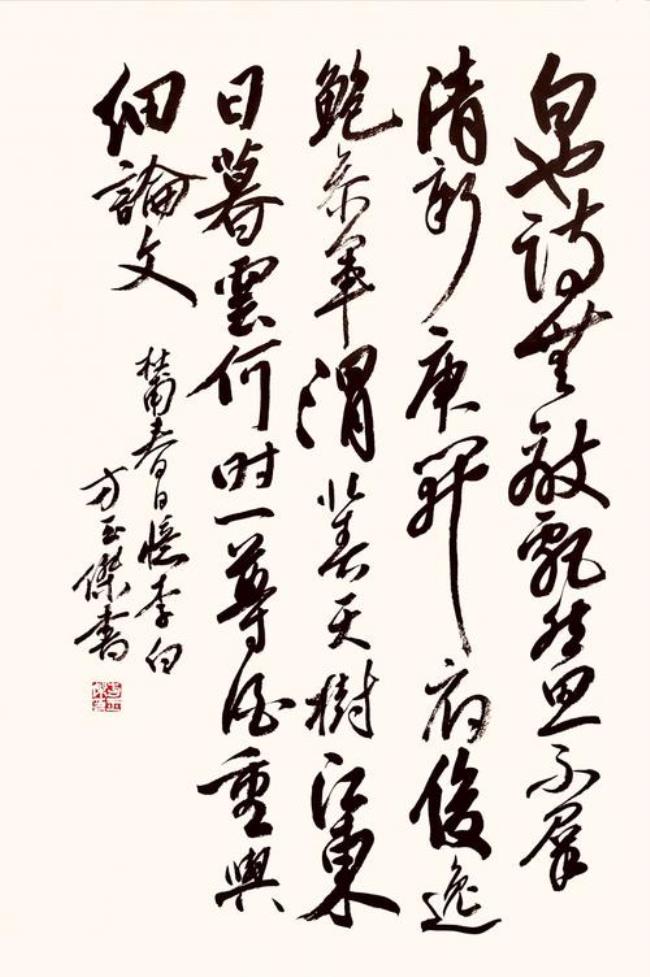 白也詩無敵飄然思不羣
清新庾開府俊逸
鮑參軍渭北春天樹江東
日暮雲何時一尊酒重與
細論文
杜甫春日憶李白
方玉傑書